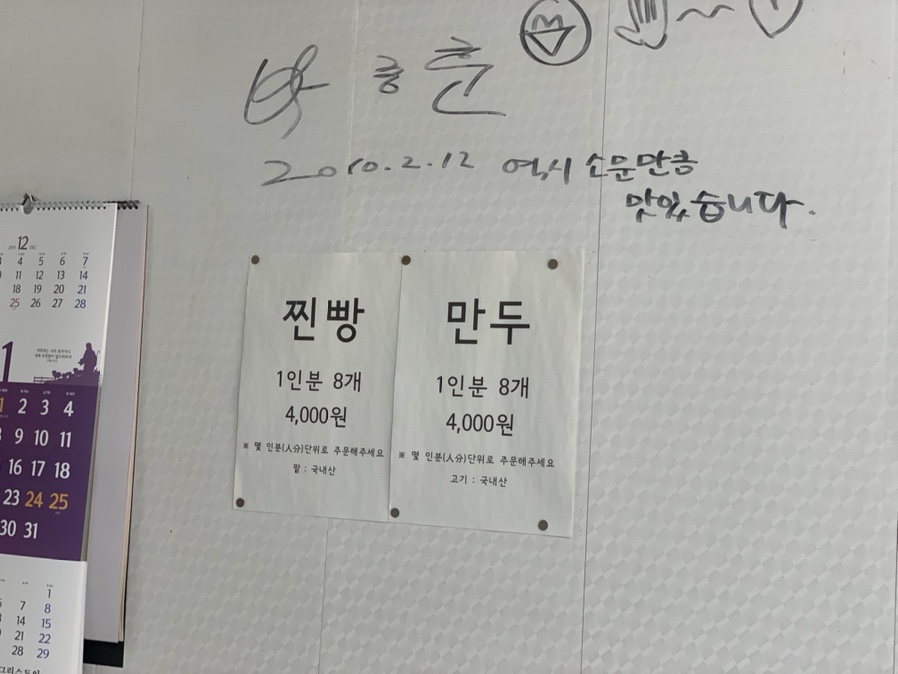 2010.2.12 역시 소문만큼
맛있습니다.
찐빵
1인분 8개
4,000원
※ 몇 인분(人分)단위로 주문해주세요
팥 : 국내산
만두
1인분 8개
4,000원
※ 몇 인분(人分)단위로 주문해주세요
고기 : 국내산
12
4 5 6 7
11 12 13 14
18 19 20 21
25 26 27 28
1
1 2 3 4
8 9 10 11
16 17 18
23 24 25
30 31
1
7 8
14 15
21 22
28 29